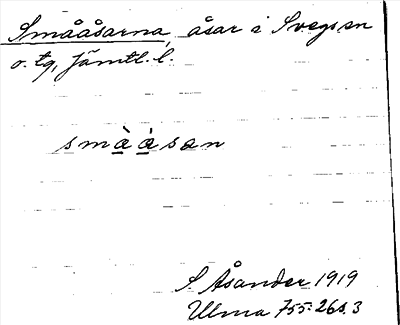 Smååsarna, åsar i Svegs sn
o. tg, Jämtl. l.
småàsan
S. Åsander 1919
Ulma 755:26 s. 3